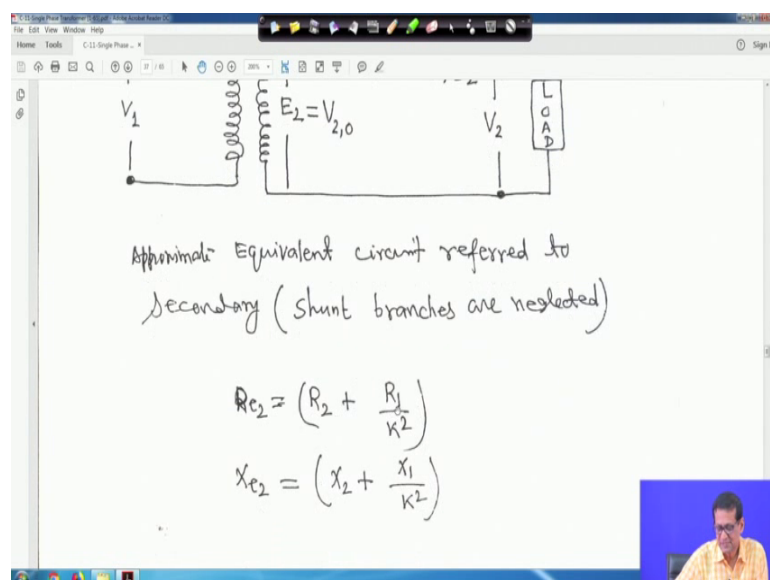 C-11-Single Phase Transformer (1-65).pdf - Adobe Acrobat Reader DC
File Edit View Window Help
Home Tools C-11-Single Phase ... × Sign I
37 / 65 200%
V₁
E₂ = V₂,₀
V₂
L
O
A
D
Approximate Equivalent circuit referred to
Secondary (shunt branches are neglected)
Re₂ = (R₂ + R₁/K²)
Xe₂ = (X₂ + X₁/K²)